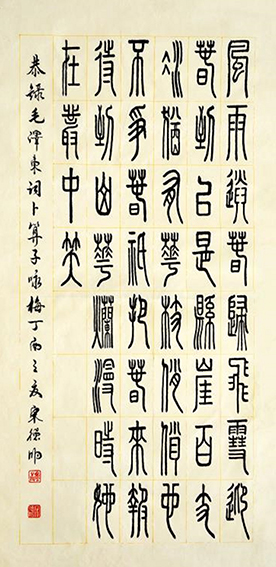 風雨送春歸飛雪迎
春到已是縣崖百丈
冰猶有華枝俏俏也
不爭春祇把春來報
待到山華爛漫時她
在叢中笑
恭録毛澤東詞卜算子咏梅丁酉之夏